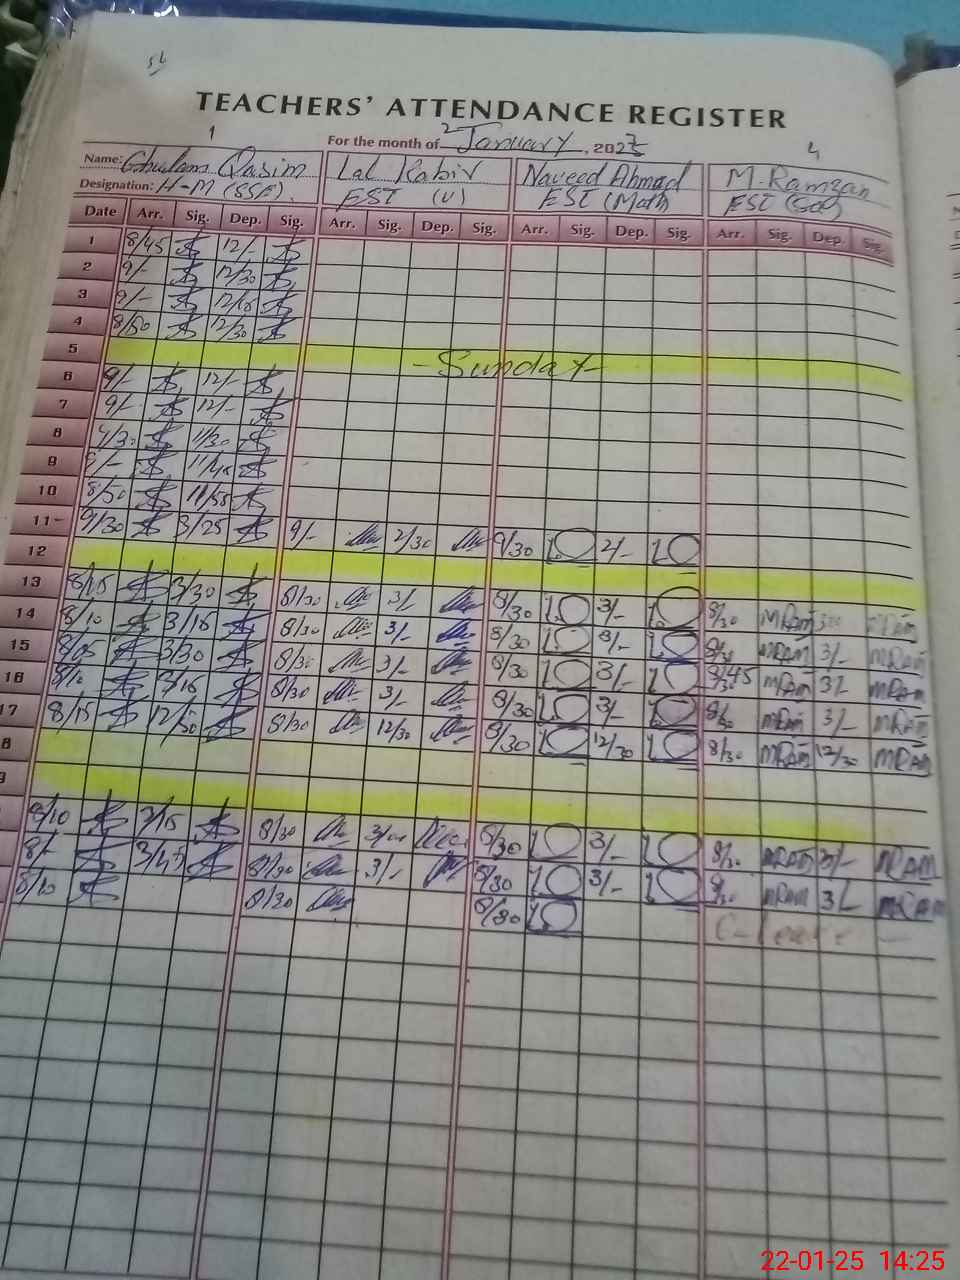 TEACHERS' ATTENDANCE REGISTER
1 2 4
For the month of January, 202
Name: Ghulam Qasim Lal Kabir Naveed Ahmad M. Ramzan
Designation: H-M (SSE) EST (U) EST (Math) EST (Sci)
Date Arr. Sig. Dep. Sig. Arr. Sig. Dep. Sig. Arr. Sig. Dep. Sig. Arr. Sig. Dep. Sig.
1 8/45 12/-
2 9/- 12/30
3 9/- 12/15
4 8/50 12/30
5 -Sunday-
6 9/- 12/-
7 9/- 12/-
8 11/30
9 9/- 11/45
10 8/50 11/55
11 9/30 3/25 9/- 2/30 9/30 2/-
12
13 8/15 3/30 8/30 3/ 8/30 3/- 8/30 MRAM
14 8/10 3/15 8/30 3/- 8/30 3/- 8/30 MRAM 3/- MRAM
15 8/05 3/30 8/30 3/- 8/30 3/- MRAM 3/- MRAM
16 8/10 3/15 8/30 3/- 8/30 3/- 8/30 MRAM 3/- MRAM
17 8/15 12/50 8/30 12/30 8/30 12/30 8/30 MRAM 12/30 MRAM
8
9
8/10 3/15 8/30 8/30 3/- 8/30 MRAM 3/- MRAM
8/- 3/45 8/30 3/- 8/30 3/- 8/30 MRAM 3/- MRAM
8/10 8/30 8/30 C-Leave
22-01-25 14:25